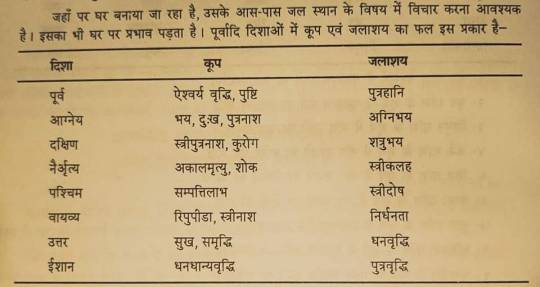 जहाँ पर घर बनाया जा रहा है, उसके आस-पास जल स्थान के विषय में विचार करना आवश्यक
है। इसका भी घर पर प्रभाव पड़ता है। पूर्वादि दिशाओं में कूप एवं जलाशय का फल इस प्रकार है–
दिशा कूप जलाशय
पूर्व ऐश्वर्य वृद्धि, पुष्टि पुत्रहानि
आग्नेय भय, दुःख, पुत्रनाश अग्निभय
दक्षिण स्त्रीपुत्रनाश, कुरोग शत्रुभय
नैर्ऋत्य अकालमृत्यु, शोक स्त्रीकलह
पश्चिम सम्पत्तिलाभ स्त्रीदोष
वायव्य रिपुपीडा, स्त्रीनाश निर्धनता
उत्तर सुख, समृद्धि धनवृद्धि
ईशान धनधान्यवृद्धि पुत्रवृद्धि